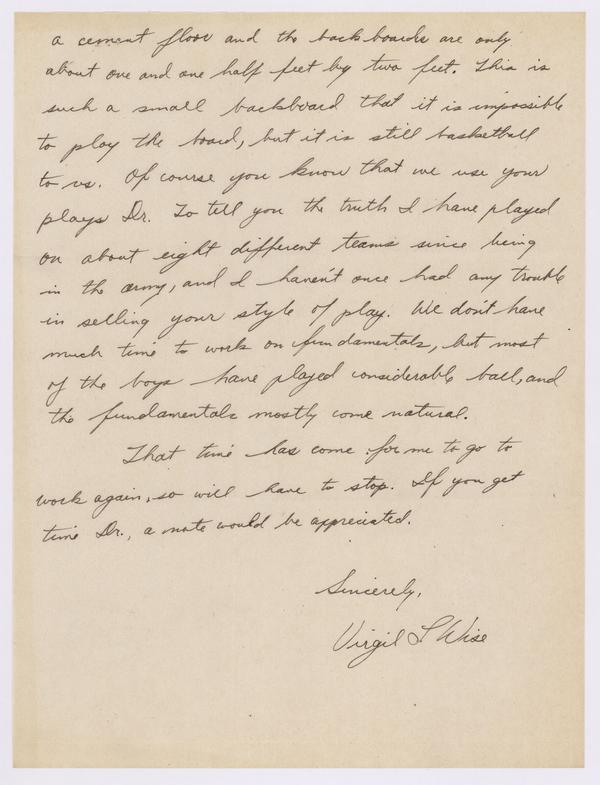 a cement floor and the backboards are only
about one and one half feet by two feet. This is
such a small backboard that it is impossible
to play the board, but it is still basketball
to us. Of course you know that we use your
plays Dr. To tell you the truth I have played
on about eight different teams since being
in the army, and I haven't once had any trouble
in selling your style of play. We don't have
much time to work on fundamentals, but most
of the boys have played considerable ball, and
the fundamentals mostly come natural.
That time has come for me to go to
work again, so will have to stop. If you get
time Dr., a note would be appreciated.
Sincerely,
Virgil L Wise